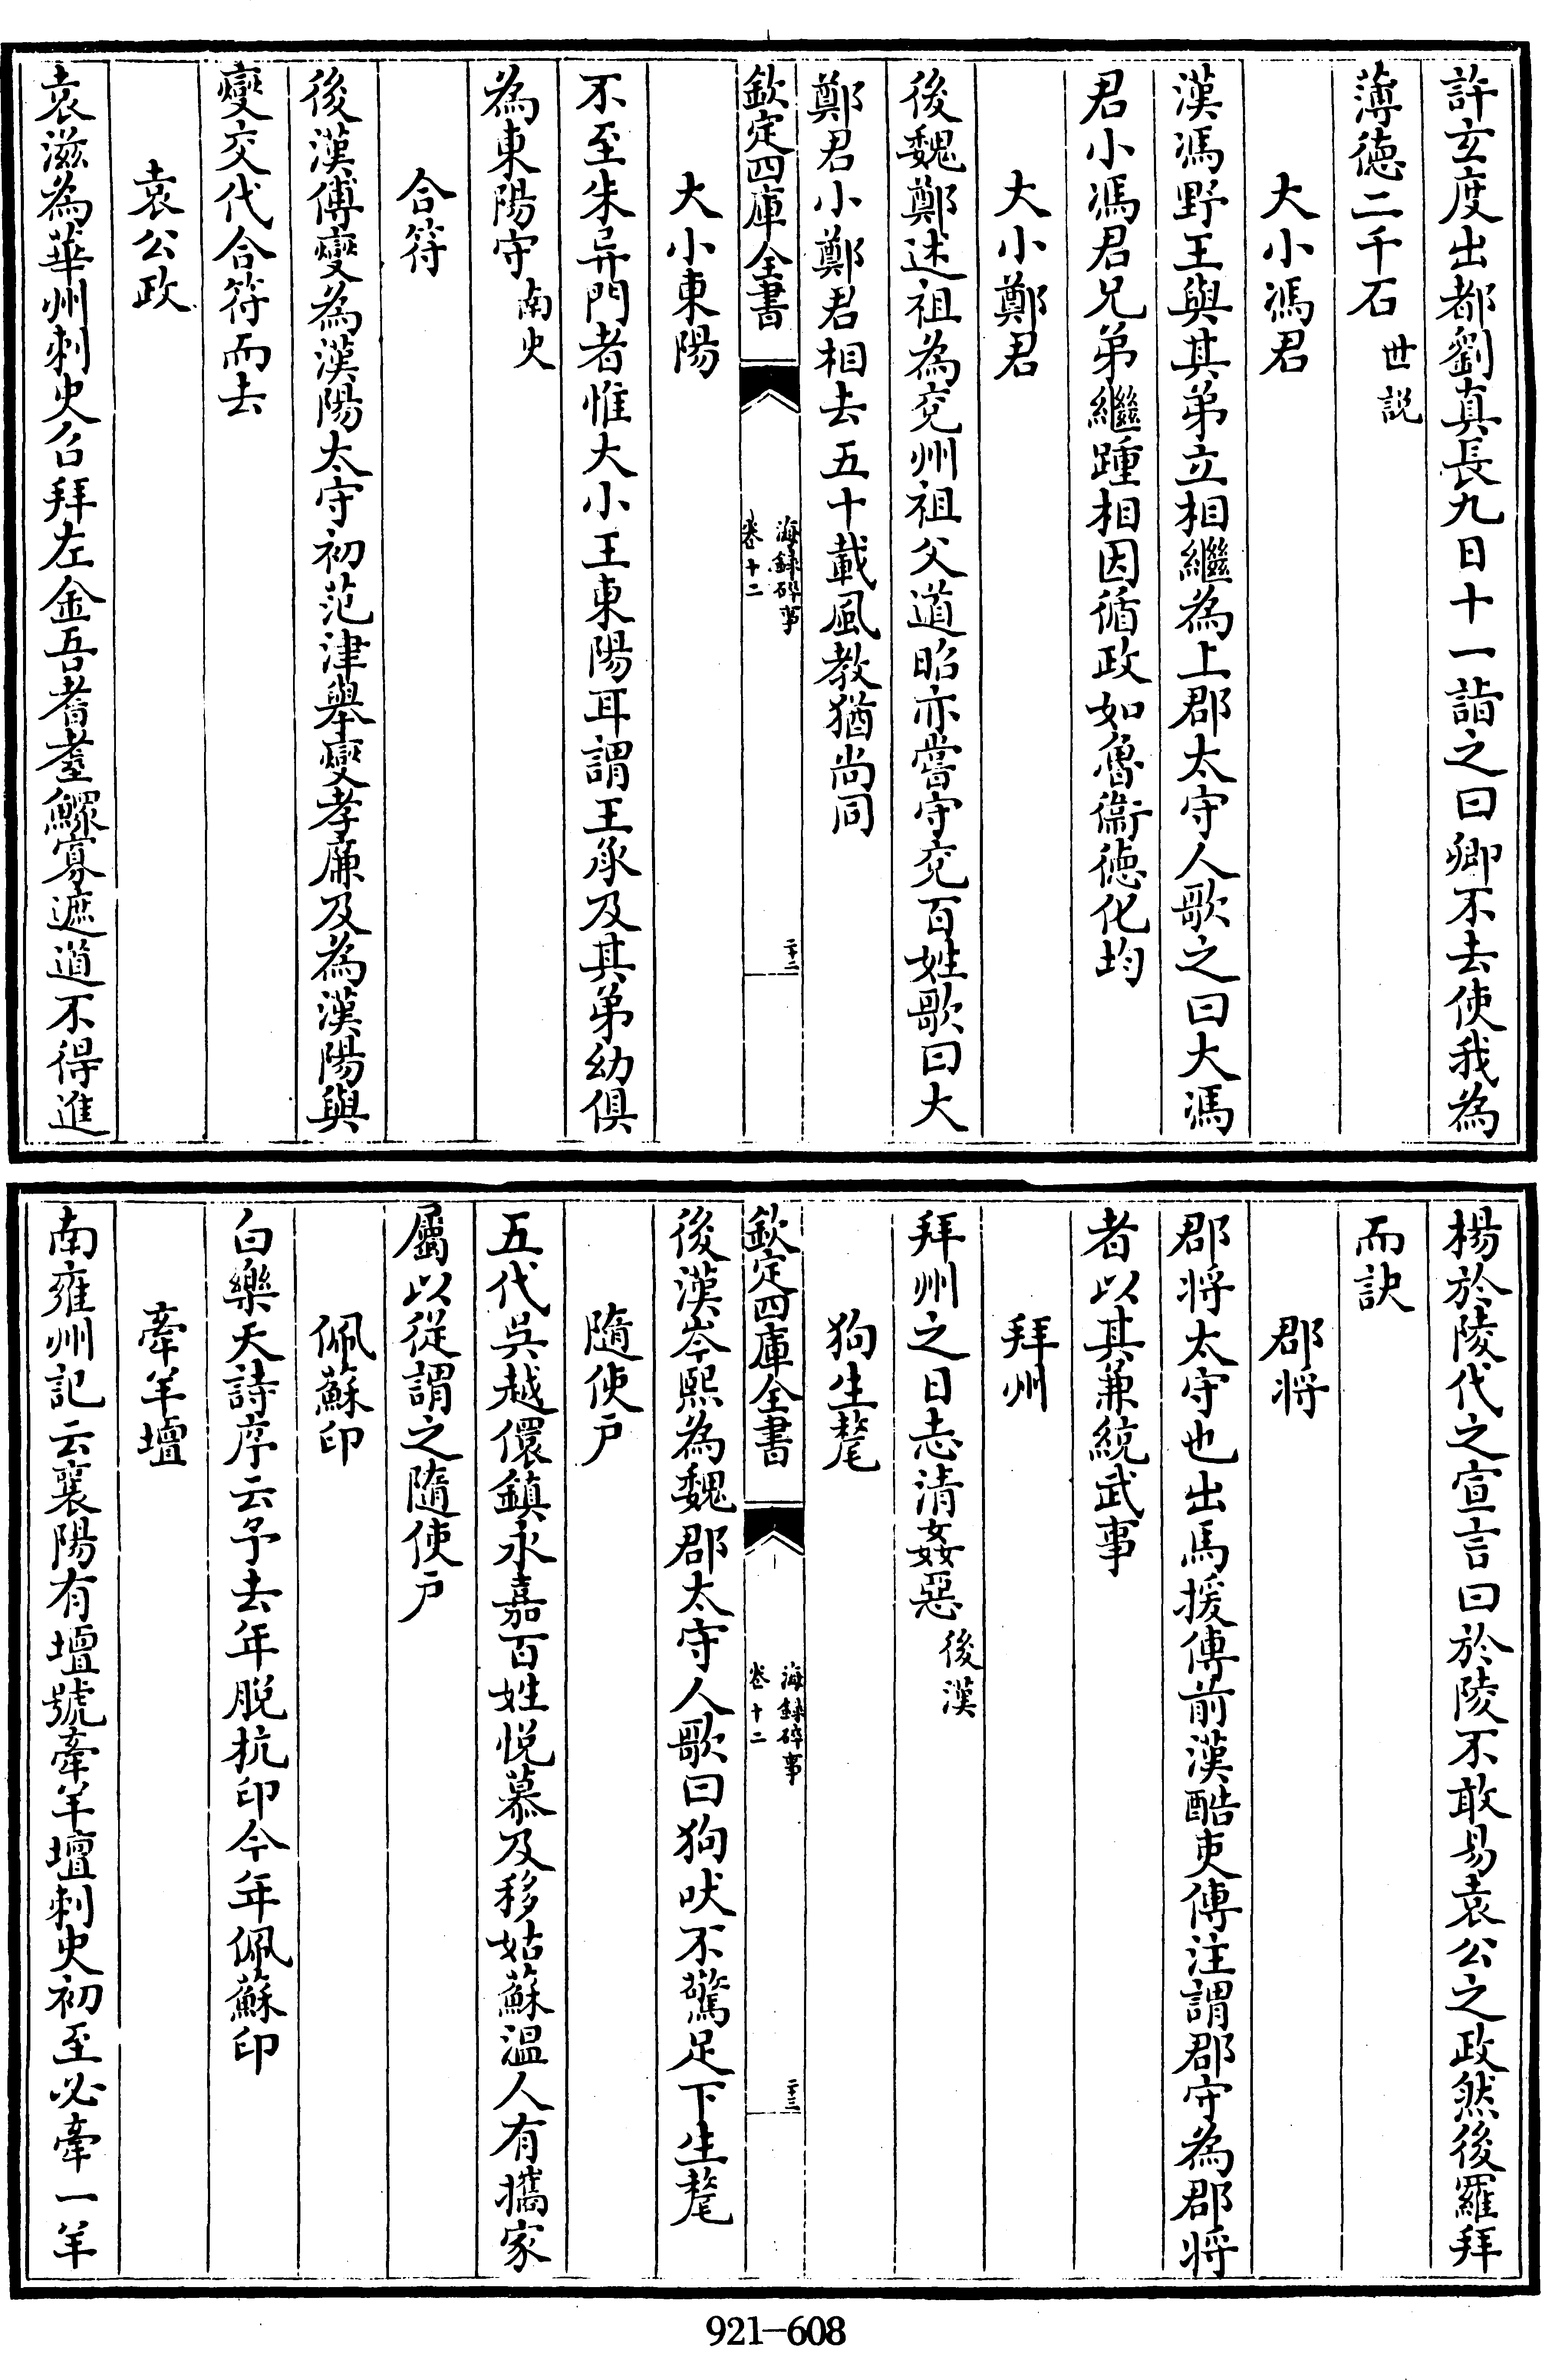 許玄度出都劉真長九日十一詣之曰卿不去使我為
薄徳二千石世說
大小馮君
漢馮野王與其弟立相繼為上郡太守人歌之曰大馮
君小馮君兄弟繼踵相因循政如魯衞徳化均
大小鄭君
後魏鄭述祖為兖州祖父道昭亦嘗守兖百姓歌曰大
鄭君小鄭君相去五十載風教猶尚同
欽定四庫全書
海録碎事
卷十二
二十二
大小東陽
不至朱异門者惟大小王東陽耳謂王承及其弟幼俱
為東陽守南史
合符
後漢傅燮為漢陽太守初范津舉燮孝廉及為漢陽與
燮交代合符而去
袁公政
袁滋為華州刺史召拜左金吾耆耋鰥寡遮道不得進
楊於陵代之宣言曰於陵不敢易袁公之政然後羅拜
而訣
郡將
郡将太守也出馬援傳前漢酷吏傳注謂郡守為郡将
者以其兼統武事
拜州
拜州之日志清姦惡後漢
狗生氂
欽定四庫全書
海録碎事
卷十二
二十三
後漢岑熙為魏郡太守人歌曰狗吠不驚足下生氂
隨使户
五代吳越儇鎮永嘉百姓悦慕及移姑蘇温人有攜家
屬以從謂之隨使户
佩蘇印
白樂天詩序云予去年脱杭印今年佩蘇印
牽羊壇
南雍州記云襄陽有壇號牽羊壇刺史初至必牽一羊
921-608